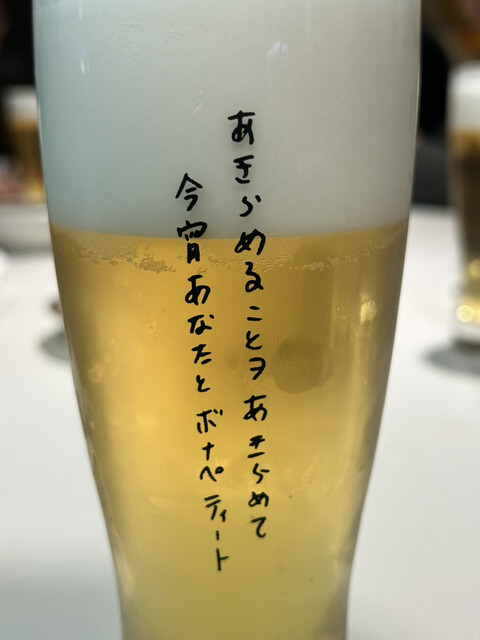 あきらめることヲあきらめて
今宵あなたとボナペティート